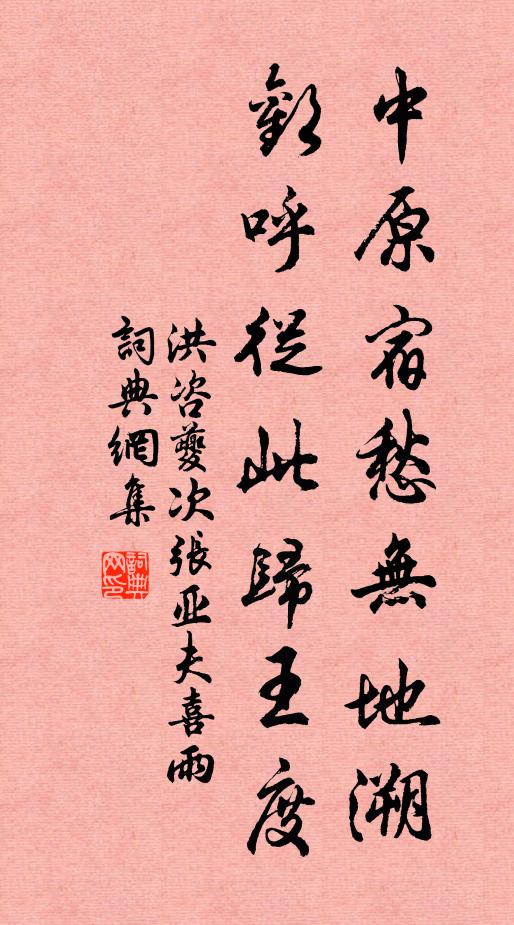 中原宿愁無地溯
歡呼從此歸王度
洪咨夔次張亚夫喜雨
詞典網集
詞典网印